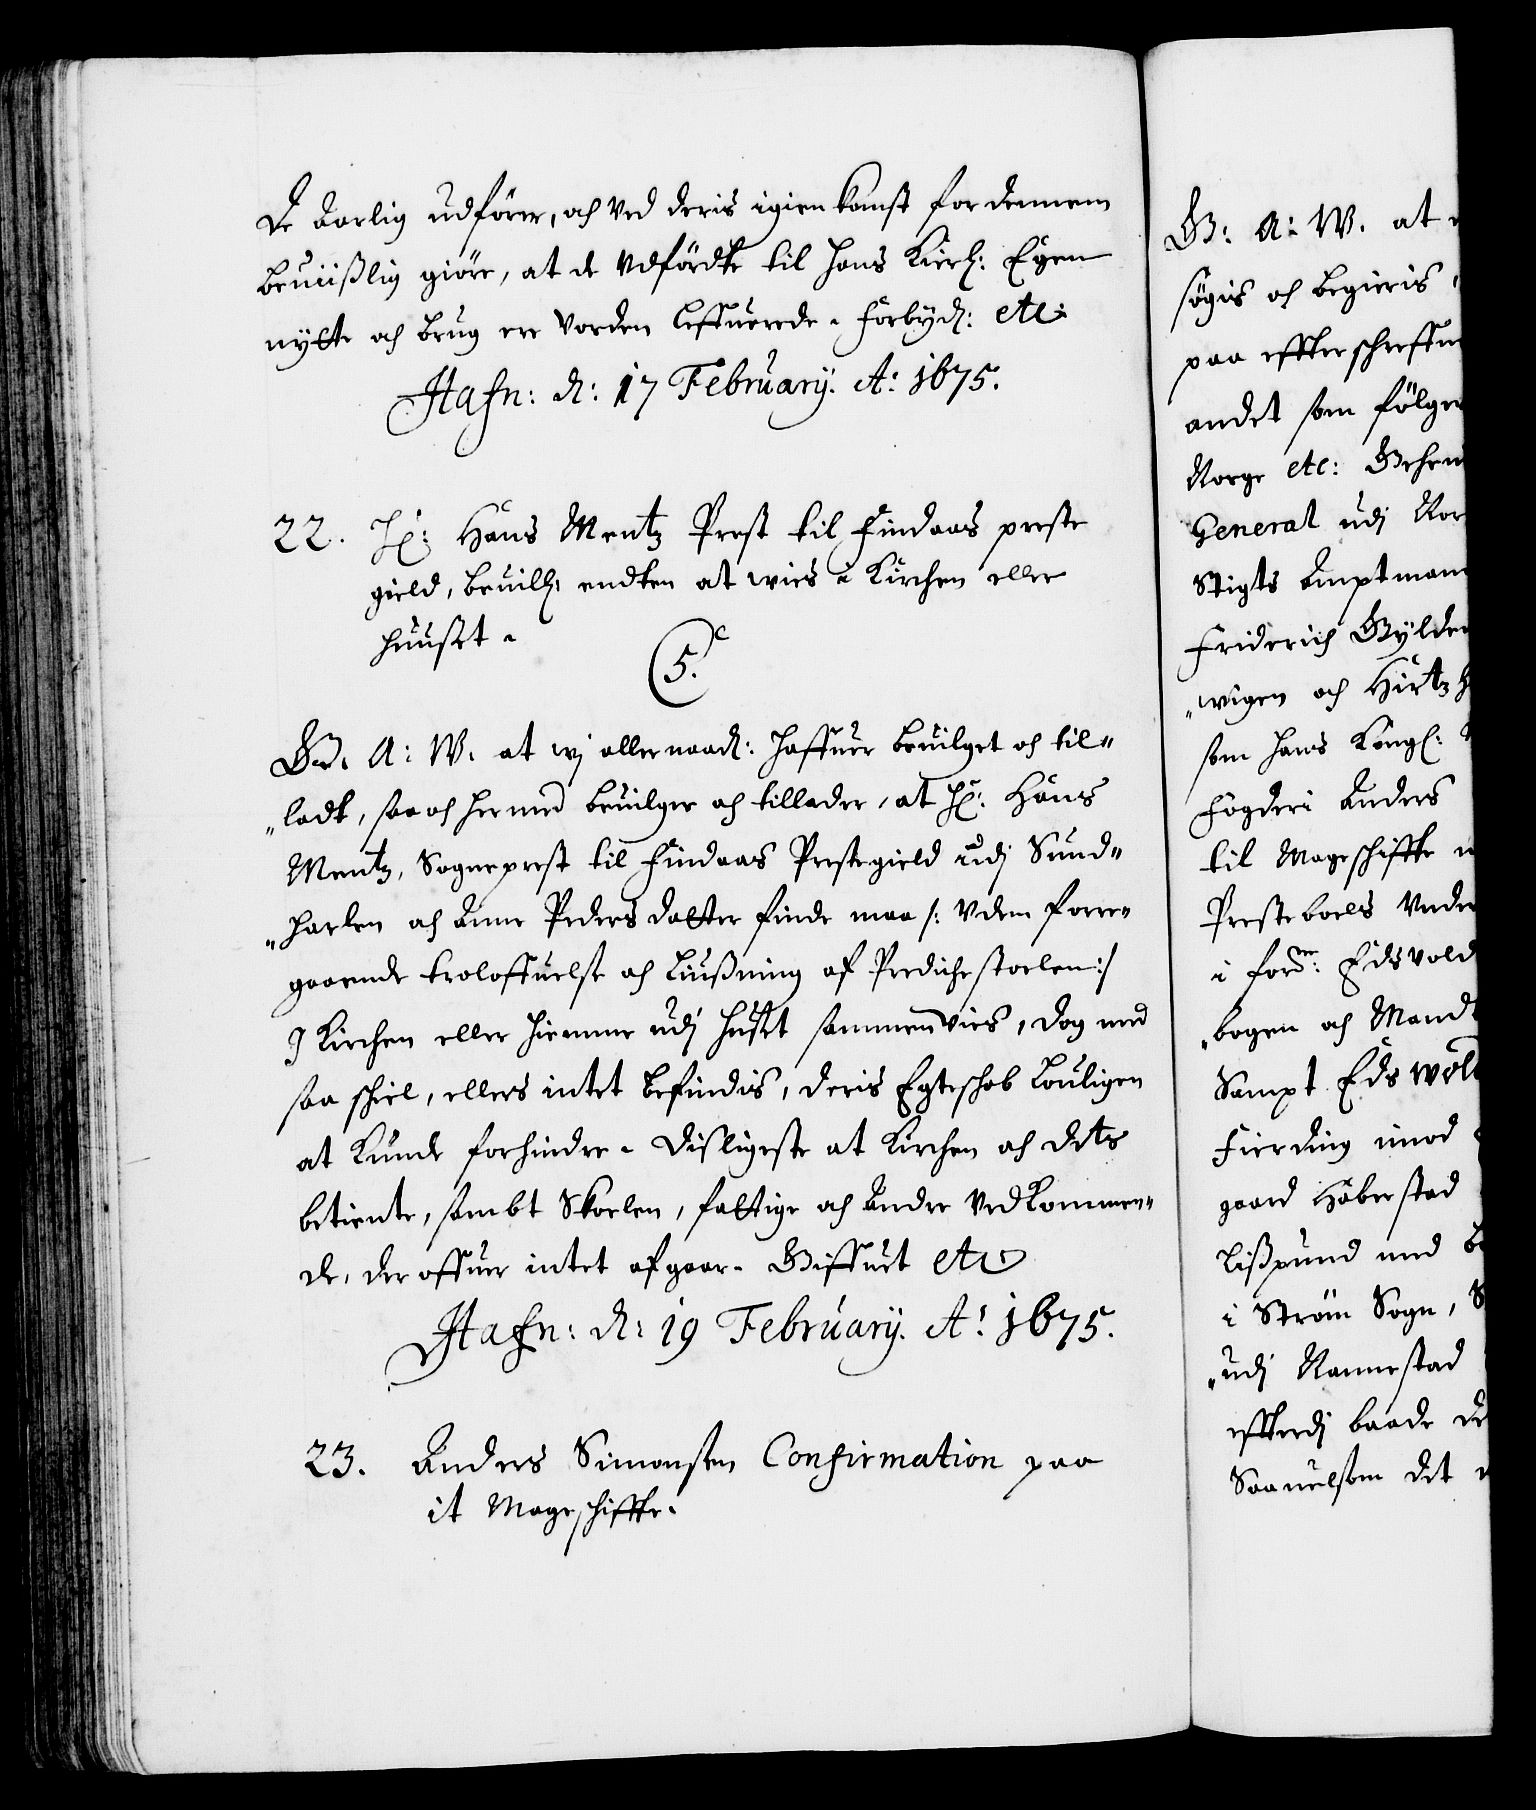 De Aarlig udfører, och ved deris igien komst for dennem
beviislig giøre, at de udførdte til hans Kierl: Egen
nytte och brug ere vorden leffuerede. Forbyd: etc:
Hafn: d: 17 February. A: 1675.
22. Hr: Hans Mentz Prest til Findaas preste
gield, bevilh: endten at vies i Kirchen eller
huuset.
5.
G. A: W. at wj allernaad: haffuer bevilget och til"
"ladt, saa och hermed bevilger och tillader, at Hr: Hans
Mentz, Sogneprest til Findaas Prestegield udj Sund"
"horlen och Anne Peders datter Finde maa /: uden forre"
gaaende troloffuelse och Liusning af Predichestoelen:/
I Kirchen eller hiemme udj huset sammenvies, dog med
saa schiel, ellers intet befindis, deris Egteschab louligen
at kunde forhindre. disligeste at Kirchen och dets
betiente, sambt Skoelen, fattige och Andre vedkommen"
de, der offuer intet afgaar. Giffuet etc:
Hafn: d: 19 February. A: 1675.
23. Anders Simensen Confirmation paa
it Mageschiffte.
G: A: W. at
søgis och begieris
paa effterschreffu
andet som følger
Norge etc: Geheim
General udj Nor
Stigts Amptman
Friderich Gylden
"wigen och Hirtzh
som hans Kongl:
Fogderi Anders
til Mageschiffte
Presteboels Under
i forne: Edsvold
"bogen och Mandt
Sampt Edswold
Fierding imod
gaard Haberstad
Lispund med
i Strøm Sogn, S
"udj Nannestad
effterdj baade de
Saauelsom det